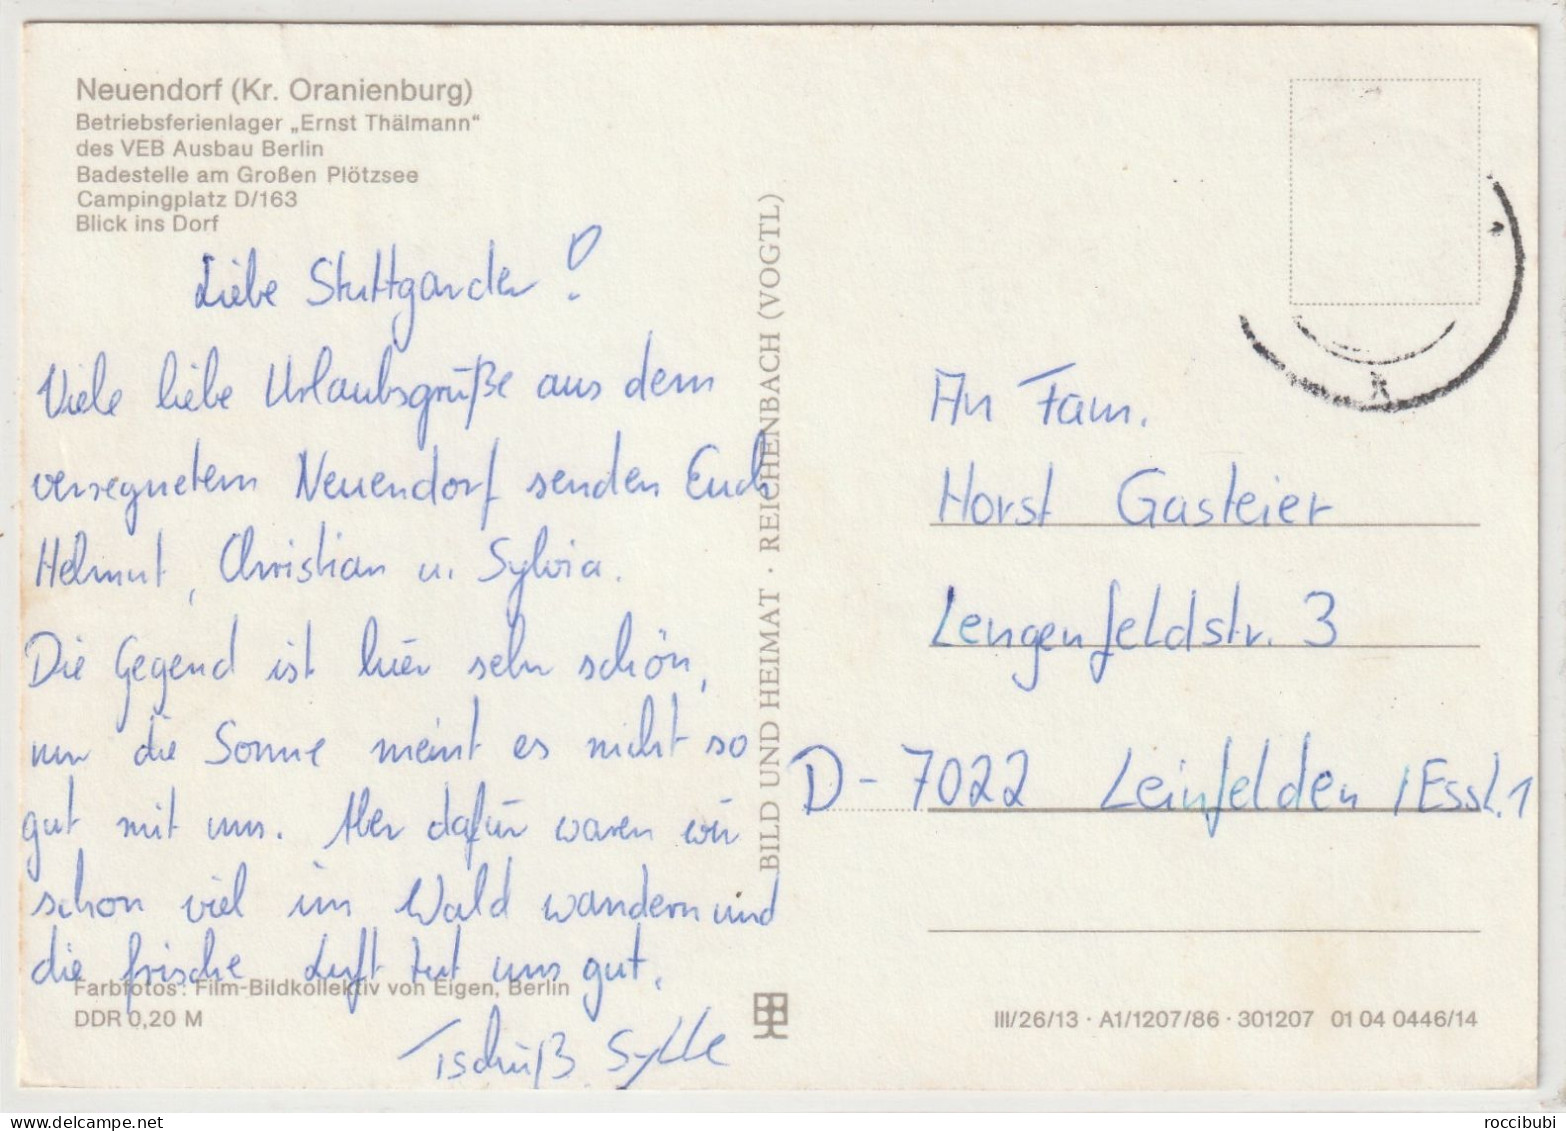 Neuendorf (Kr. Oranienburg)
Betriebsferienlager „Ernst Thälmann“
des VEB Ausbau Berlin
Badestelle am Großen Plötzsee
Campingplatz D/163
Blick ins Dorf
Liebe Stuttgarder!
Viele liebe Urlaubsgrüße aus dem
verregnetem Neuendorf senden Euch
Helmut, Christian u. Sylvia.
Die Gegend ist hier sehr schön,
nur die Sonne meint es nicht so
gut mit uns. Aber dafür waren wir
schon viel im Wald wandern und
die frische Luft tut uns gut.
Tschüß Sylle
Farbfotos: Film-Bildkollektiv von Eigen, Berlin
DDR 0,20 M
BILD UND HEIMAT · REICHENBACH (VOGTL)
An Fam.
Horst Gasteier
Lengenfeldstr. 3
D-7022 Leinfelden /Essl. 1
III/26/13 · A1/1207/86 · 301207 01 04 0446/14
roccibubi